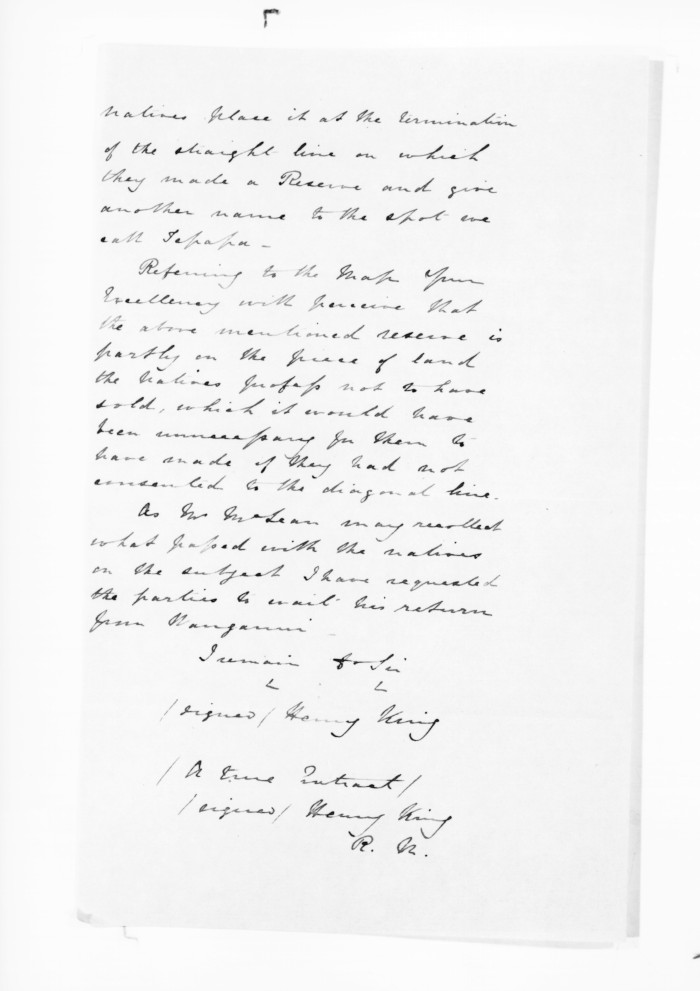 natives place it at the termination
of the straight line on which
they made a Reserve and give
another name to the spot we
call Tepapa -
Referring to the Map Your
Excellency will perceive that
the above mentioned reserve is
partly on the piece of land
the Natives profess not to have
sold, which it would have
been unnecessary for them to
have made if they had not
consented to the diagonal line.
As Mr McLean may recollect
what passed with the natives
on the subject I have requested
the parties to wait his return
from Wanganui -
I remain Sir
/signed/ Henry King
/A true Extract/
/signed/ Henry King
R. N.